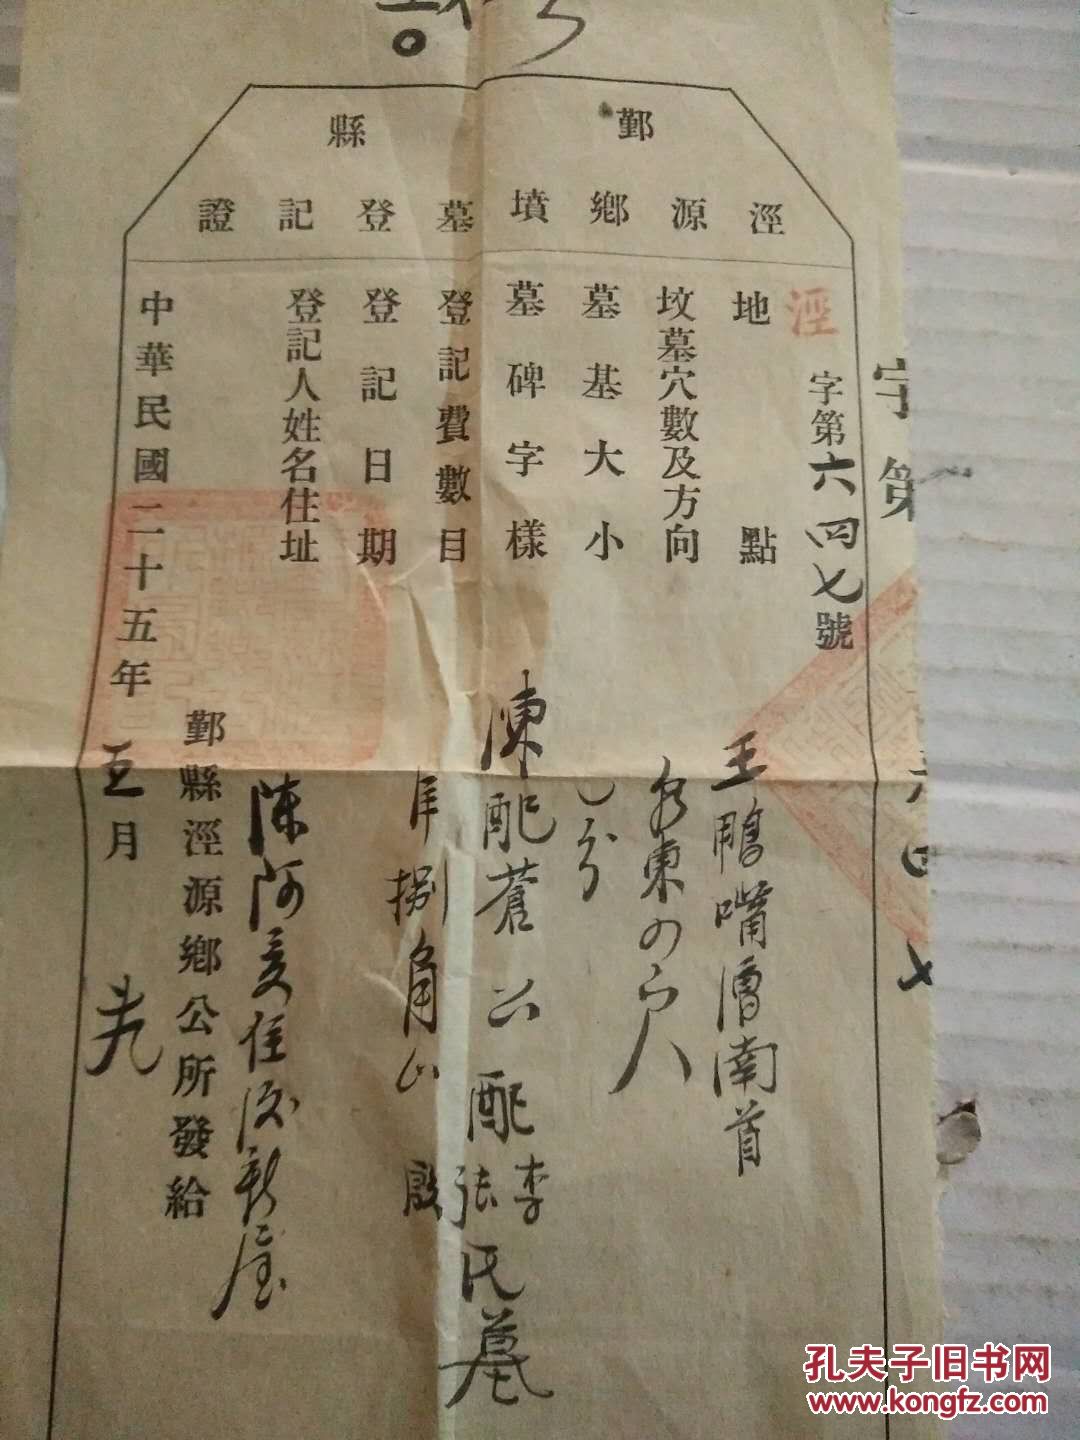 鄞縣
涇源鄉墳墓登記證
涇字第六四七號
地點 王鴨嘴漕南首
坟墓穴數及方向 東四穴
墓基大小 分
墓碑字樣 陳配蒼公配李張氏墓
登記費數目 捌角
登記日期
登記人姓名住址 陈阿 住 新屋
鄞縣涇源鄉公所發給
中華民國二十五年 五月
字第
孔夫子旧书网
www.kongfz.com